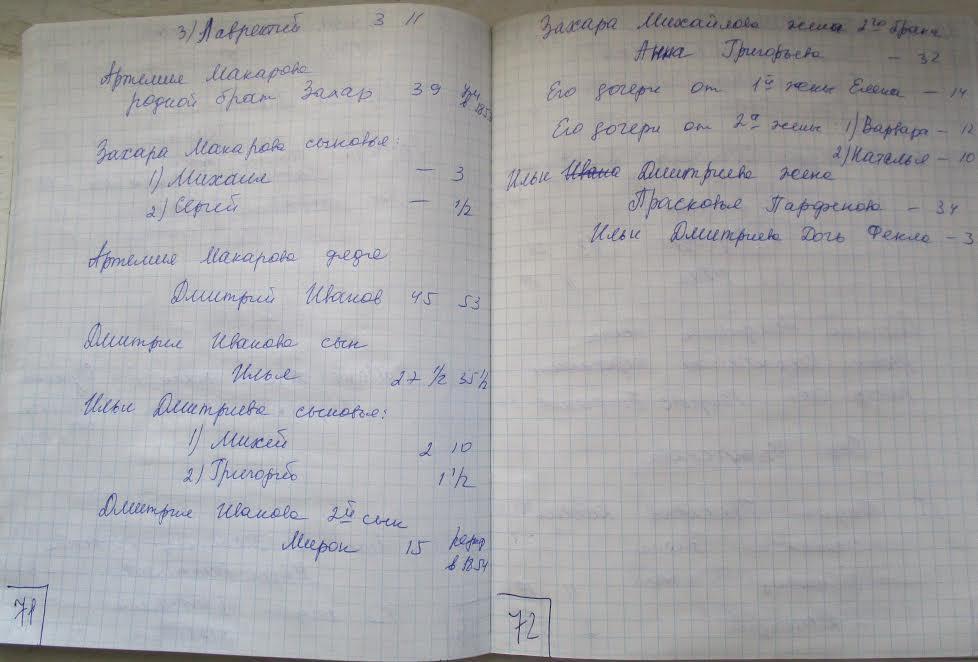 3) Лаврентий 3 11
Артемия Макарова
родной брат Захар 39 ум в 1853
Захара Макарова сыновья:
1) Михаил — 3
2) Сергей — 1/2
Артемия Макарова дядя
Дмитрий Иванов 45 53
Дмитрия Иванова сын
Илья 27 1/2 35 1/2
Ильи Дмитриева сыновья:
1) Михей 2 10
2) Григорий 1 1/2
Дмитрия Иванова 2й сын
Мирон 15 рекр
в 1854
71
Захара Михайлова жена 2го брака
Анна Григорьева — 32
Его дочери от 1й жены Елена — 14
Его дочери от 2й жены: 1) Варвара — 12
2) Наталья — 10
Ильи Ивана Дмитриева жена
Прасковья Парфенова — 34
Ильи Дмитриева дочь Фекла — 3
72